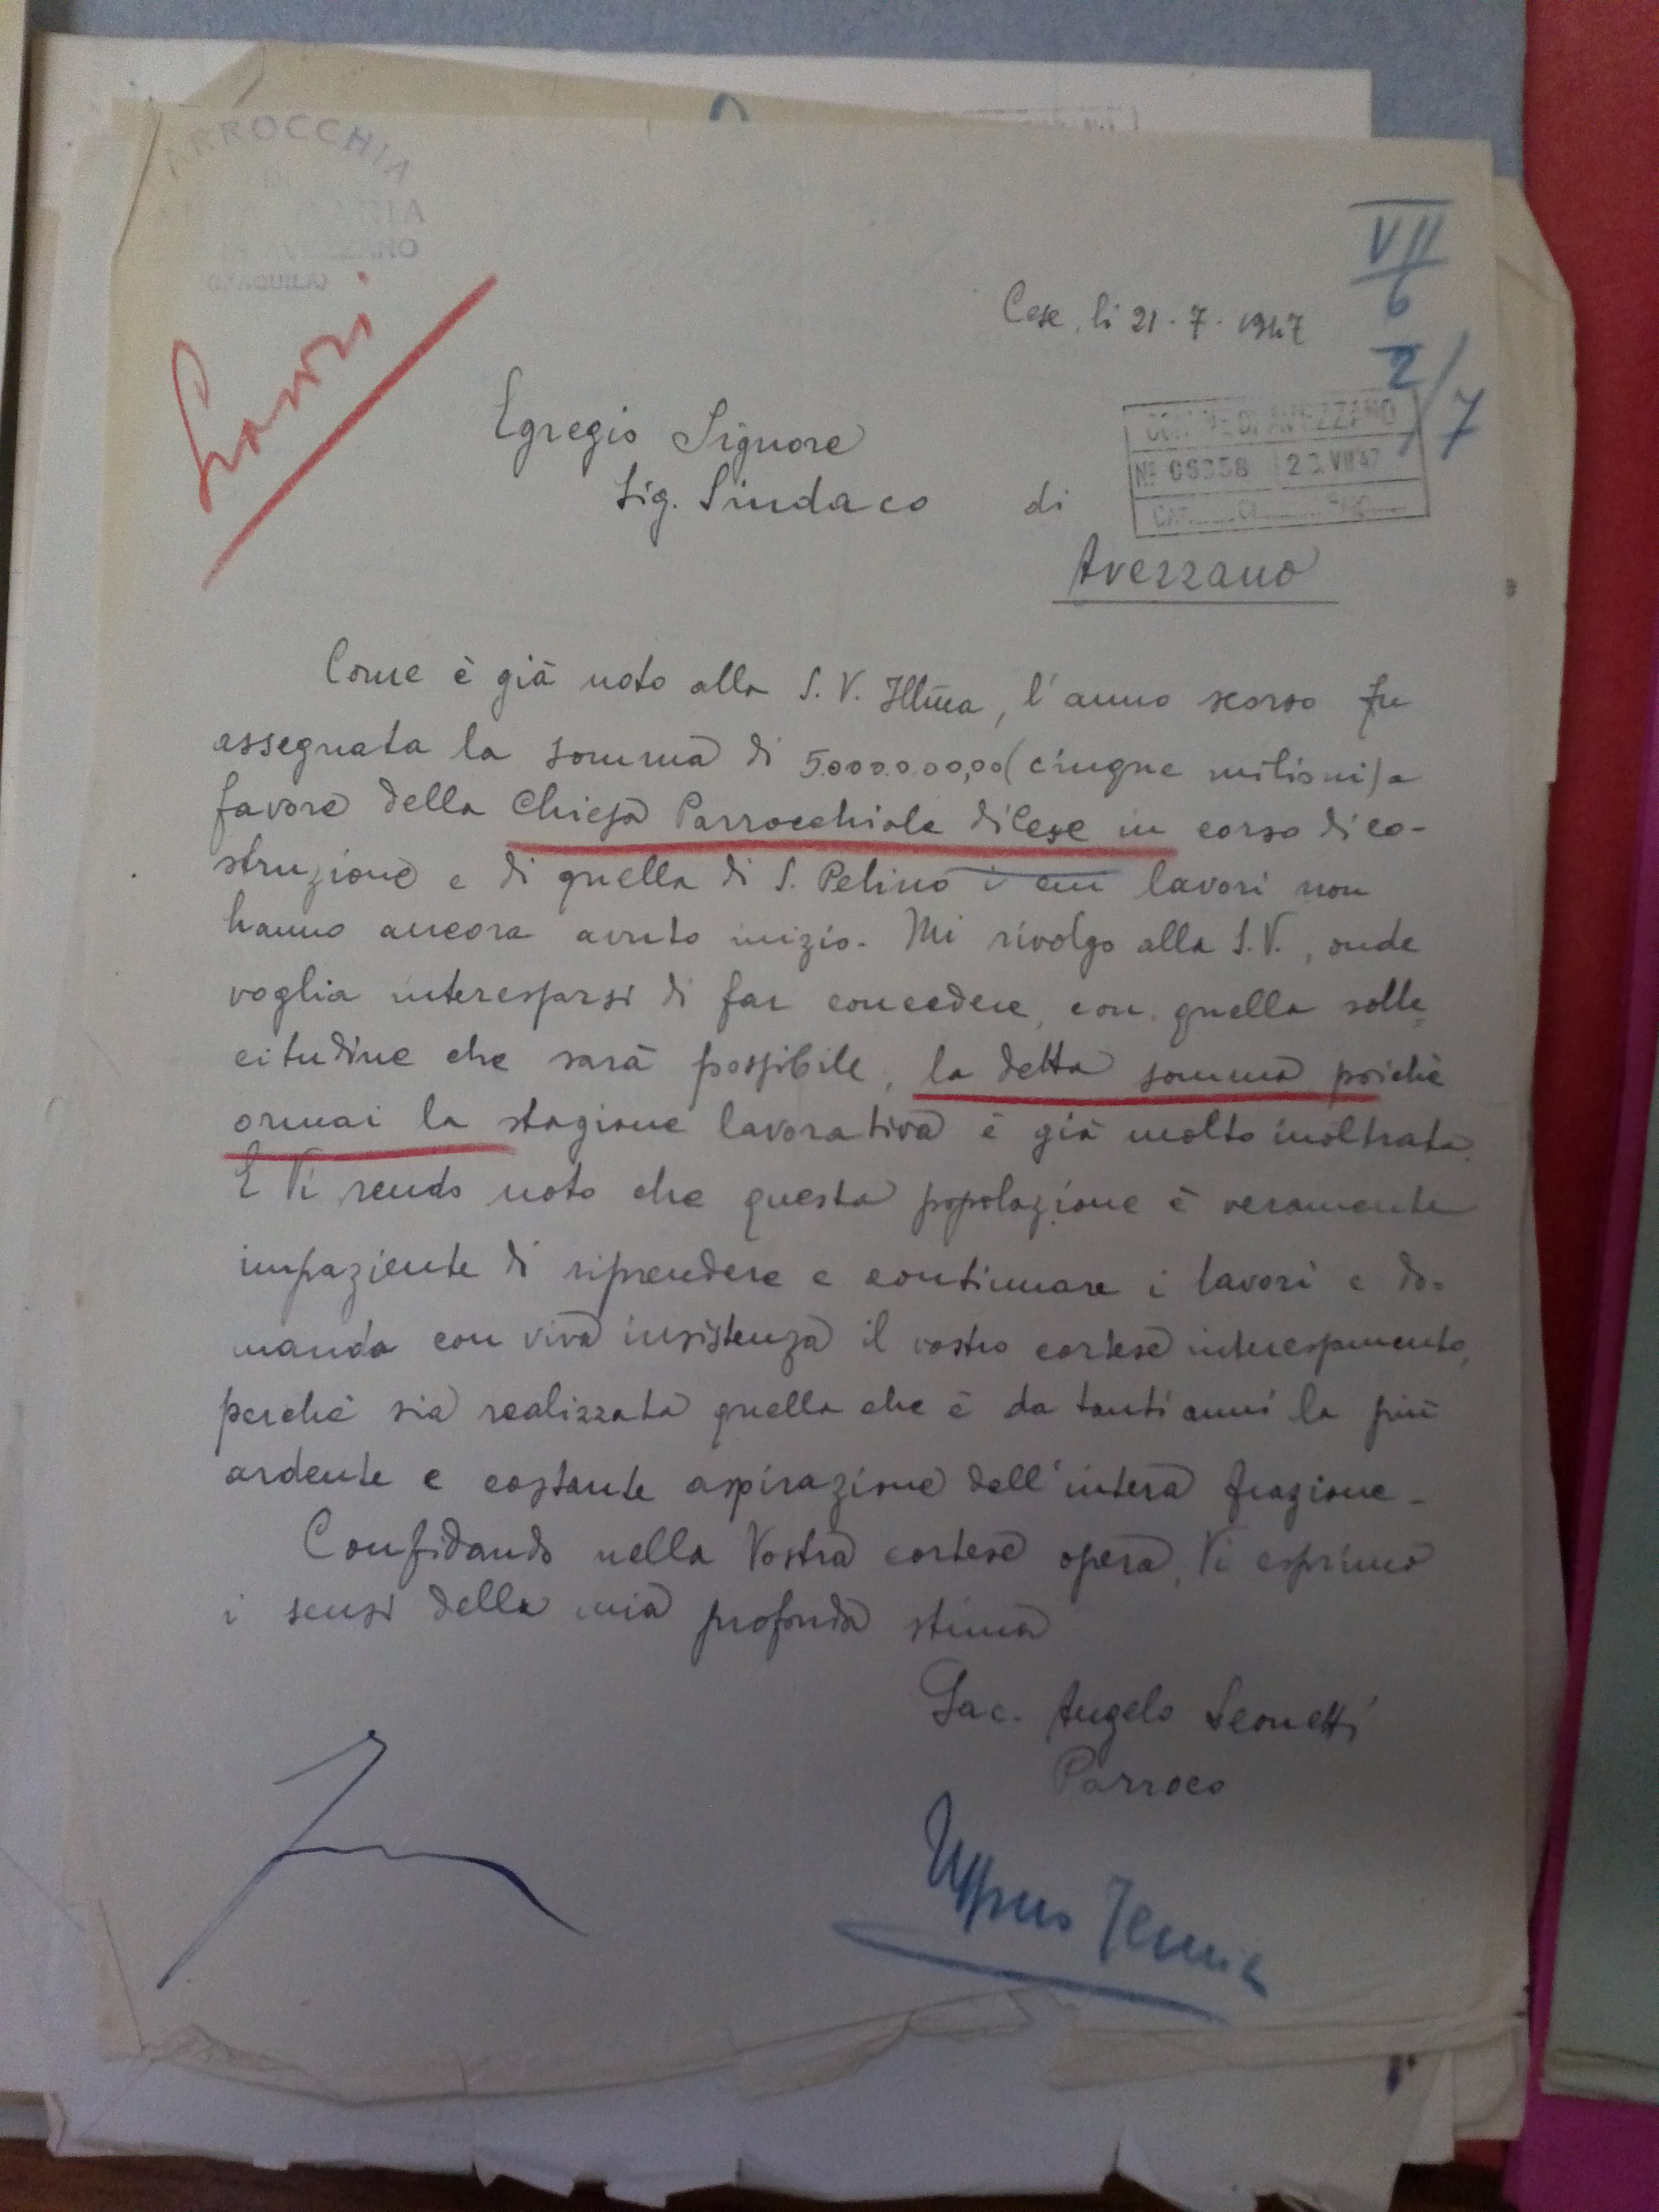 PARROCCHIA
MARIA
AVEZZANO
(L'AQUILA)
VII
6
2/7
Lavori
Cese, li 21-7-1947
Egregio Signore
Sig. Sindaco di
Avezzano
COMUNE DI AVEZZANO
Nº VII 47
CAT. Cl.
Come è già noto alla S. V. Ill̄ma, l'anno scorso fu
assegnata la somma di 5.000.000,00 (cinque milioni) a
favore della Chiesa Parrocchiale di Cese in corso di co-
struzione e di quella di S. Pelino i cui lavori non
hanno ancora avuto inizio. Mi rivolgo alla S.V., onde
voglia interessarsi di far concedere, con quella solle
citudine che sarà possibile, la detta somma poichè
ormai la stagione lavorativa è già molto inoltrata.
E Vi rendo noto che questa popolazione è veramente
impaziente di riprendere e continuare i lavori e do-
manda con viva insistenza il vostro cortese interessamento,
perchè sia realizzata quella che è da tanti anni la più
ardente e costante aspirazione dell'intera frazione -
Confidando nella Vostra cortese opera, Vi esprimo
i sensi della mia profonda stima
Sac. Angelo Leonetti
Parroco